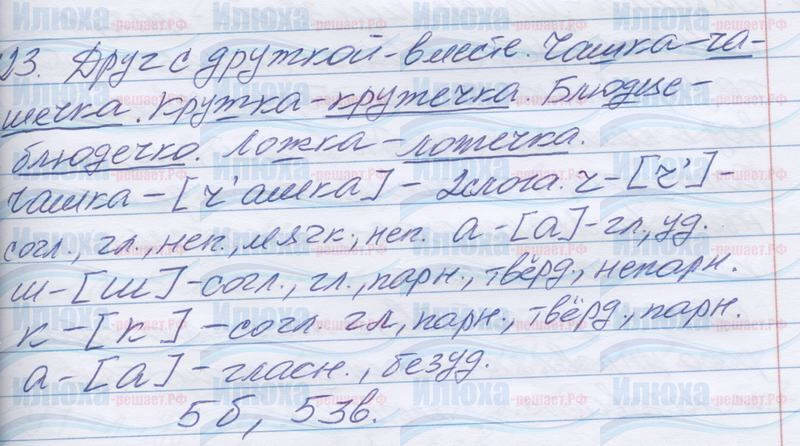 123. Друг с дружкой - вместе. Чашка - ча-
шечка. Кружка - кружечка. Блюдце -
блюдечко. Ложка - ложечка.
Чашка - [ч'ашка] - 2 слога. ч - [ч'] -
согл., гл., неп., мягк., неп. а - [а] - гл., уд.
ш - [ш] - согл., гл., парн., твёрд., непарн.
к - [к] - согл. гл., парн., твёрд., парн.
а - [а] - гласн., безуд.
5 б, 5 зв.
Илюха -решает.РФ